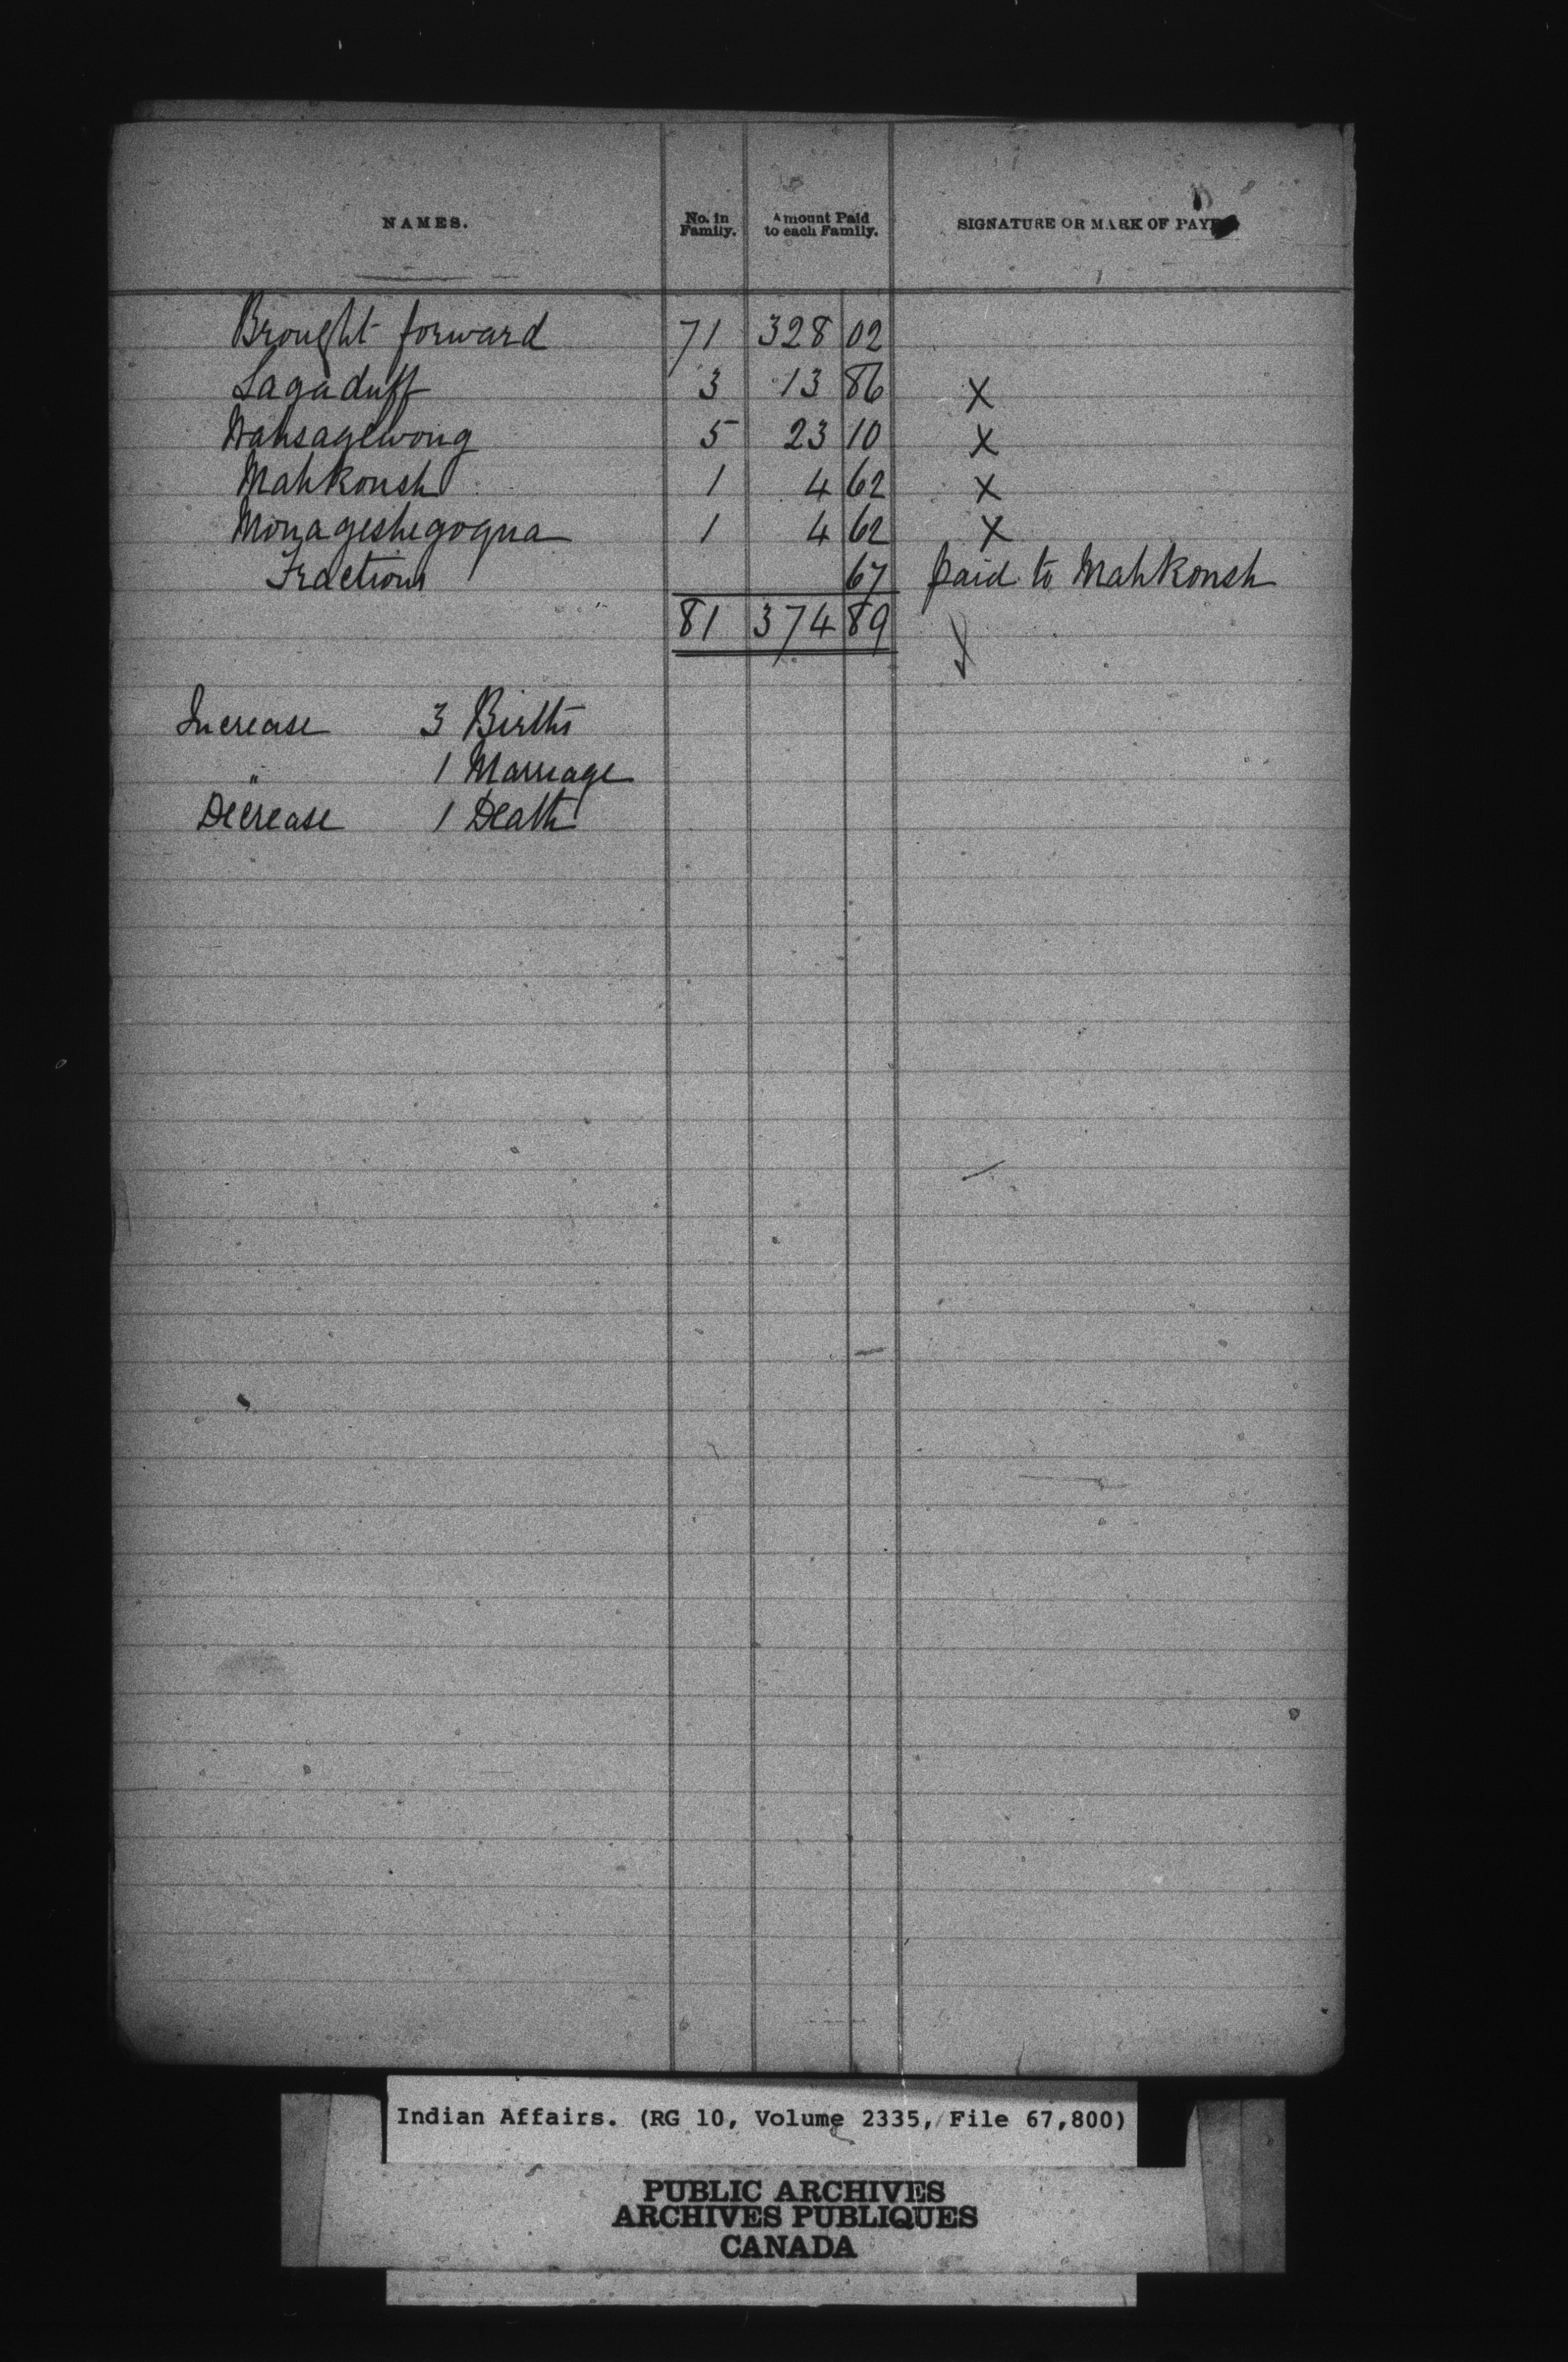 NAMES. No. in Family. Amount Paid to each Family. SIGNATURE OR MARK OF PAYEE
Brought forward 71 328 02
Lagaduff 3 13 86 X
Wahsagewong 5 23 10 X
Mahkonsh 1 4 62 X
Monageshegoqua 1 4 62 X
Fractions 67 paid to Mahkonsh
81 374 89
Increase 3 Births
" 1 Marriage
Decrease 1 Death
Indian Affairs. (RG 10, Volume 2335, File 67,800)
PUBLIC ARCHIVES
ARCHIVES PUBLIQUES
CANADA